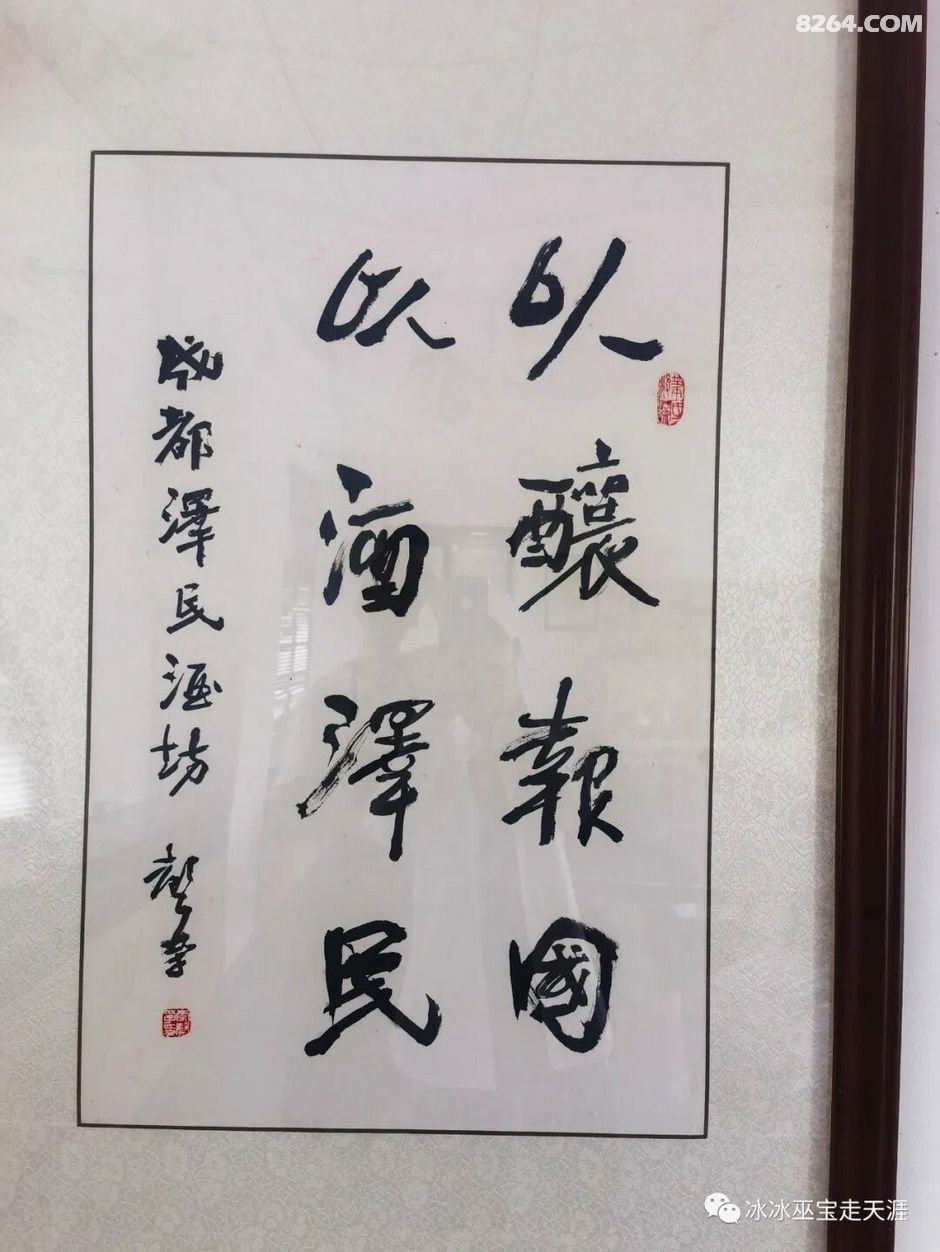 8264.COM
以釀報國
以酒澤民
成都澤民酒坊
冰冰巫宝走天涯